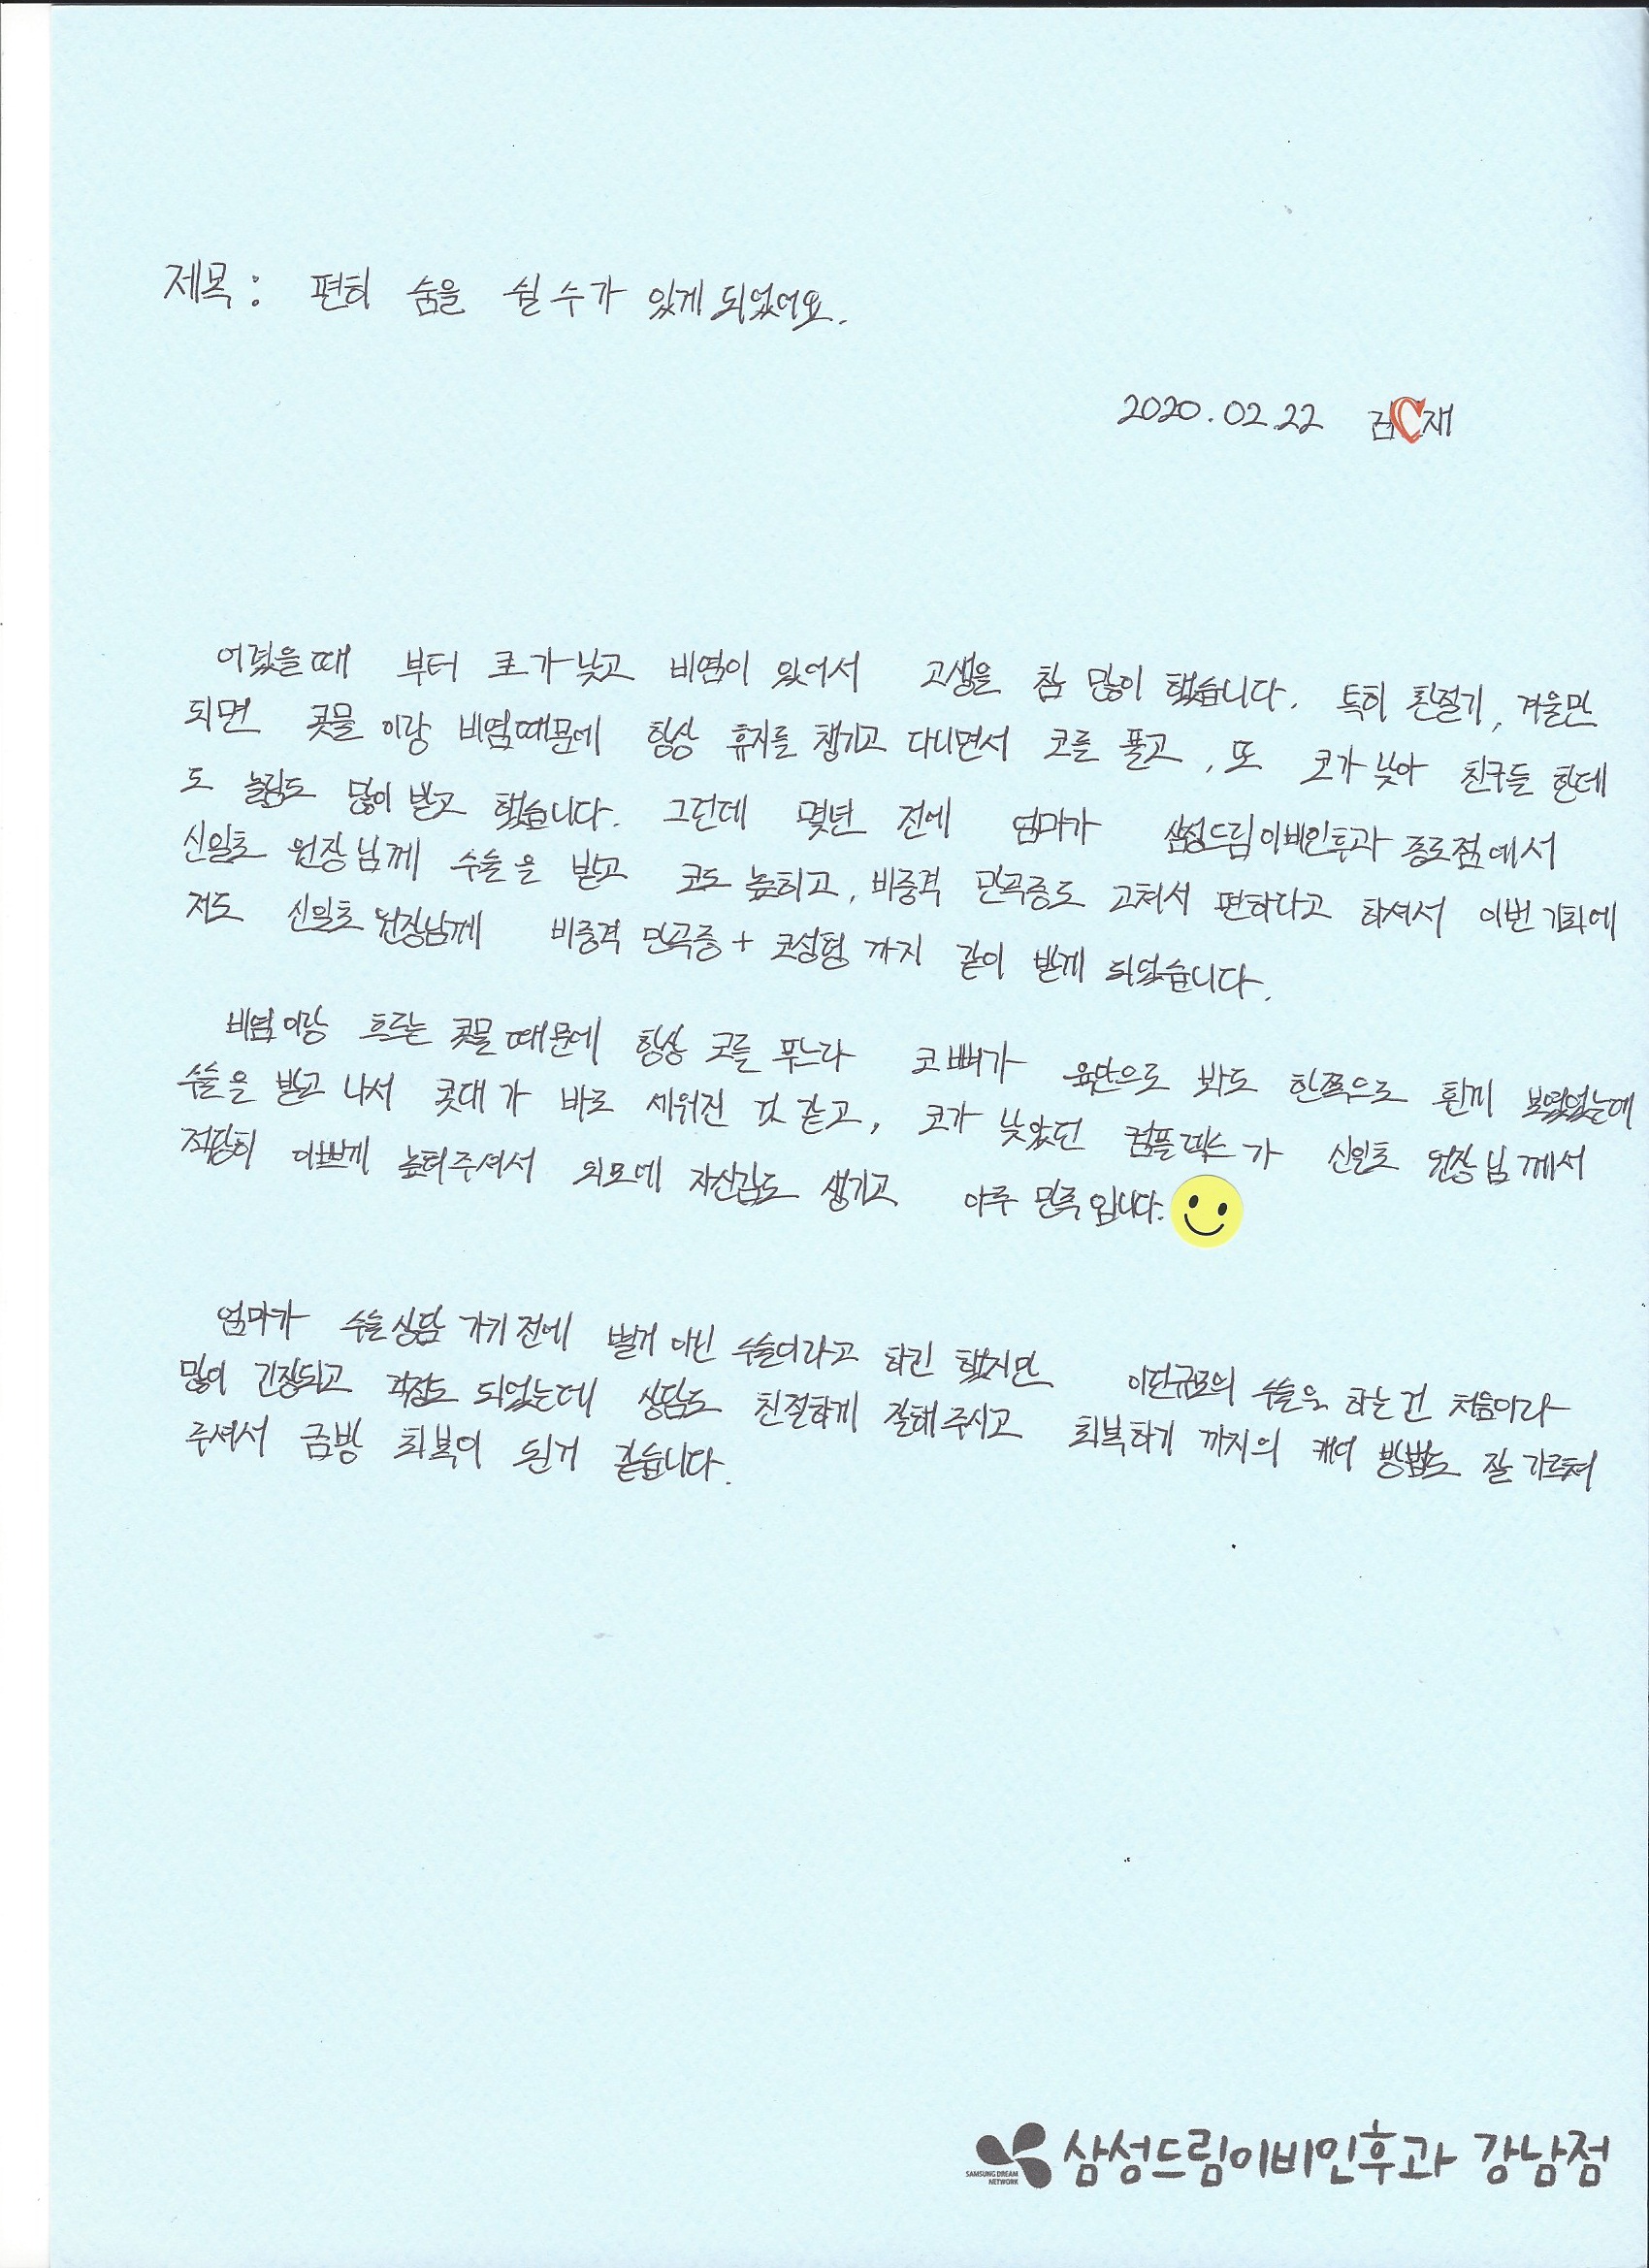 제목 : 편히 숨을 쉴 수가 있게 되었어요.
2020.02.22 김 재
어렸을때 부터 코가 낮고 비염이 있어서 고생을 참 많이 했습니다. 특히 환절기, 겨울만
되면 콧물 이랑 비염때문에 항상 휴지를 챙기고 다니면서 코를 풀고, 또 코가 낮아 친구들 한테
도 놀림도 많이 받고 했습니다. 그런데 몇년 전에 엄마가 삼성드림이비인후과 종로점에서
신일호 원장님께 수술을 받고 코도 높히고, 비중격 만곡증도 고쳐서 편하다고 하셔서 이번 기회에
저도 신일호 원장님께 비중격 만곡증 + 코성형 까지 같이 받게 되었습니다.
비염이랑 흐르는 콧물 때문에 항상 코를 푸느라 코 뼈가 육안으로 봐도 한쪽으로 휜게 보였었는데
수술을 받고 나서 콧대가 바로 세워진 것 같고, 코가 낮았던 컴플렉스가 신일호 원장님께서
적당히 이쁘게 높여주셔서 외모에 자신감도 생기고 아주 만족입니다.
엄마가 수술상담 가기전에 별거 아닌 수술이라고 하긴 했지만 이만규모의 수술을 하는건 처음이라
많이 긴장되고 걱정도 되었는데 상담도 친절하게 잘해주시고 회복하기 까지의 케어 방법도 잘 가르쳐
주셔서 금방 회복이 된거 같습니다.
SAMSUNG DREAM
NETWORK
삼성드림이비인후과 강남점